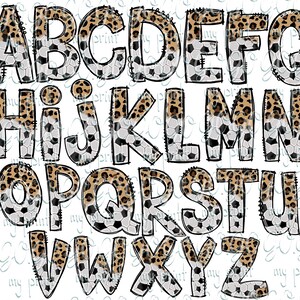 ABCDEFG
HijKLMN
OPQRSTU
VWXYZ